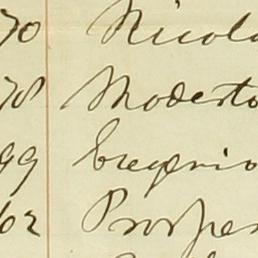 70 Nicola
78 Modesto
99 Gregorio
62 Prosper